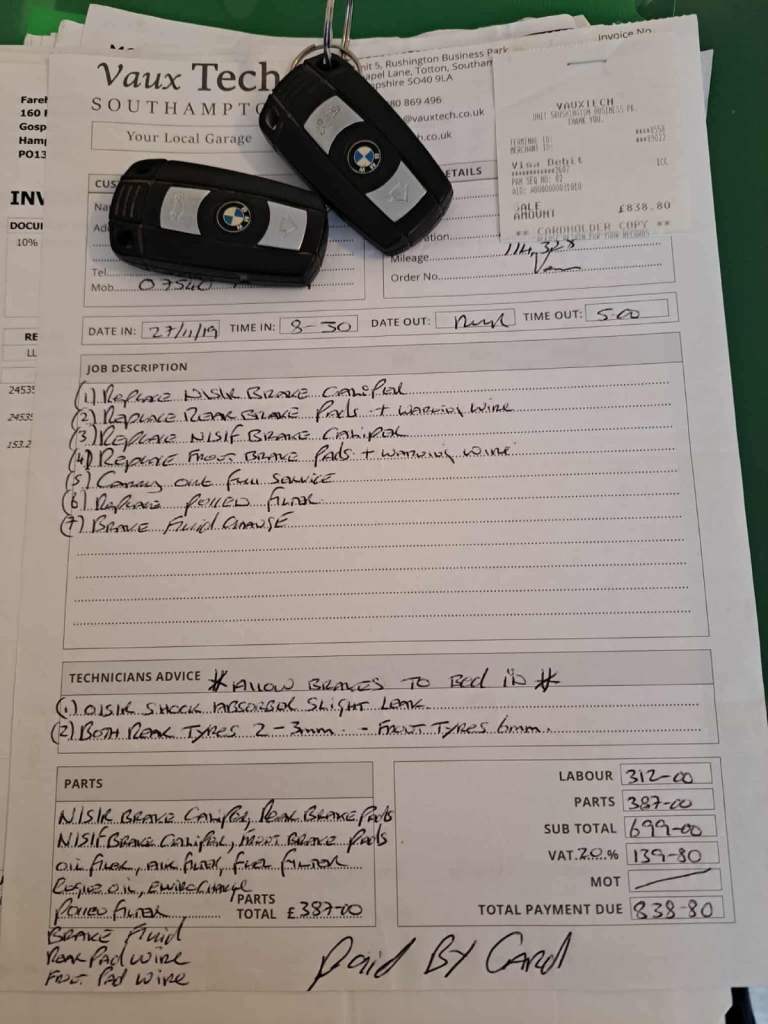 Invoice No
Vaux Tech
SOUTHAMPTO
Your Local Garage
nit 5, Rushington Business Park
apel Lane, Totton, Southam
pshire SO40 9LA
80 869 496
@vauxtech.co.uk
h.co.uk
VAUXTECH
THANK YOU.
TERMINAL ID:
MERCHANT ID:
Visa Debit
ICC
PAN SEQ NO: 02
SALE
AMOUNT £838.80
** CARDHOLDER COPY **
Fareh
160
Gosp
Hamp
PO13
INV
DOCU
10%
RE
LL
2453
2453
153.2
CUS
Na
Ad
Tel
Mob 0754
ETAILS
ation
Mileage 114,328
Order No
DATE IN: 27/11/19 TIME IN: 8-30 DATE OUT: TIME OUT: 5.00
JOB DESCRIPTION
(1) REPLACE N/S/R BRAKE CALIPER
(2) REPLACE REAR BRAKE PADS + WARNING WIRE
(3) REPLACE N/S/F BRAKE CALIPER
(4) REPLACE FRONT BRAKE PADS + WARNING WIRE
(5) CARRY OUT FULL SERVICE
(6) REPLACE POLLEN FILTER
(7) BRAKE FLUID CHANGE
TECHNICIANS ADVICE * ALLOW BRAKES TO BED IN *
(1) O/S/R SHOCK ABSORBER SLIGHT LEAK
(2) BOTH REAR TYRES 2-3mm. - FRONT TYRES 6mm.
PARTS
N/S/R BRAKE CALIPER, REAR BRAKE PADS
N/S/F BRAKE CALIPER, FRONT BRAKE PADS
OIL FILTER, AIR FILTER, FUEL FILTER
ENGINE OIL, ENVIROCHARGE
POLLEN FILTER
PARTS
TOTAL £387-00
BRAKE FLUID
REAR PAD WIRE
FRONT PAD WIRE
LABOUR 312-00
PARTS 387-00
SUB TOTAL 699-00
VAT 20 % 139-80
MOT
TOTAL PAYMENT DUE 838-80
PAID BY CARD